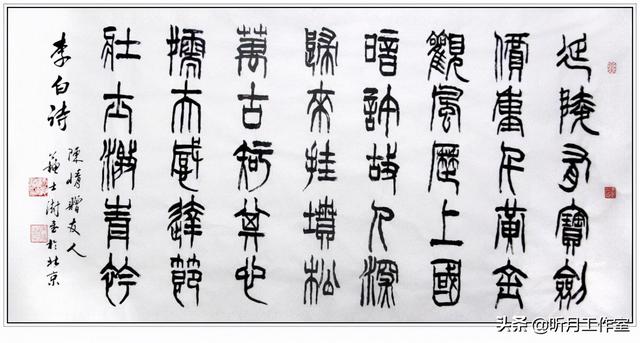 延陵有寶劍
價重千黃金
觀風歷上國
暗許故人深
歸來挂墳松
萬古知其心
懦夫感達節
壯士激青衿
李白詩
陳情贈友人
蘇士澍書於北京
头条 @听月工作室